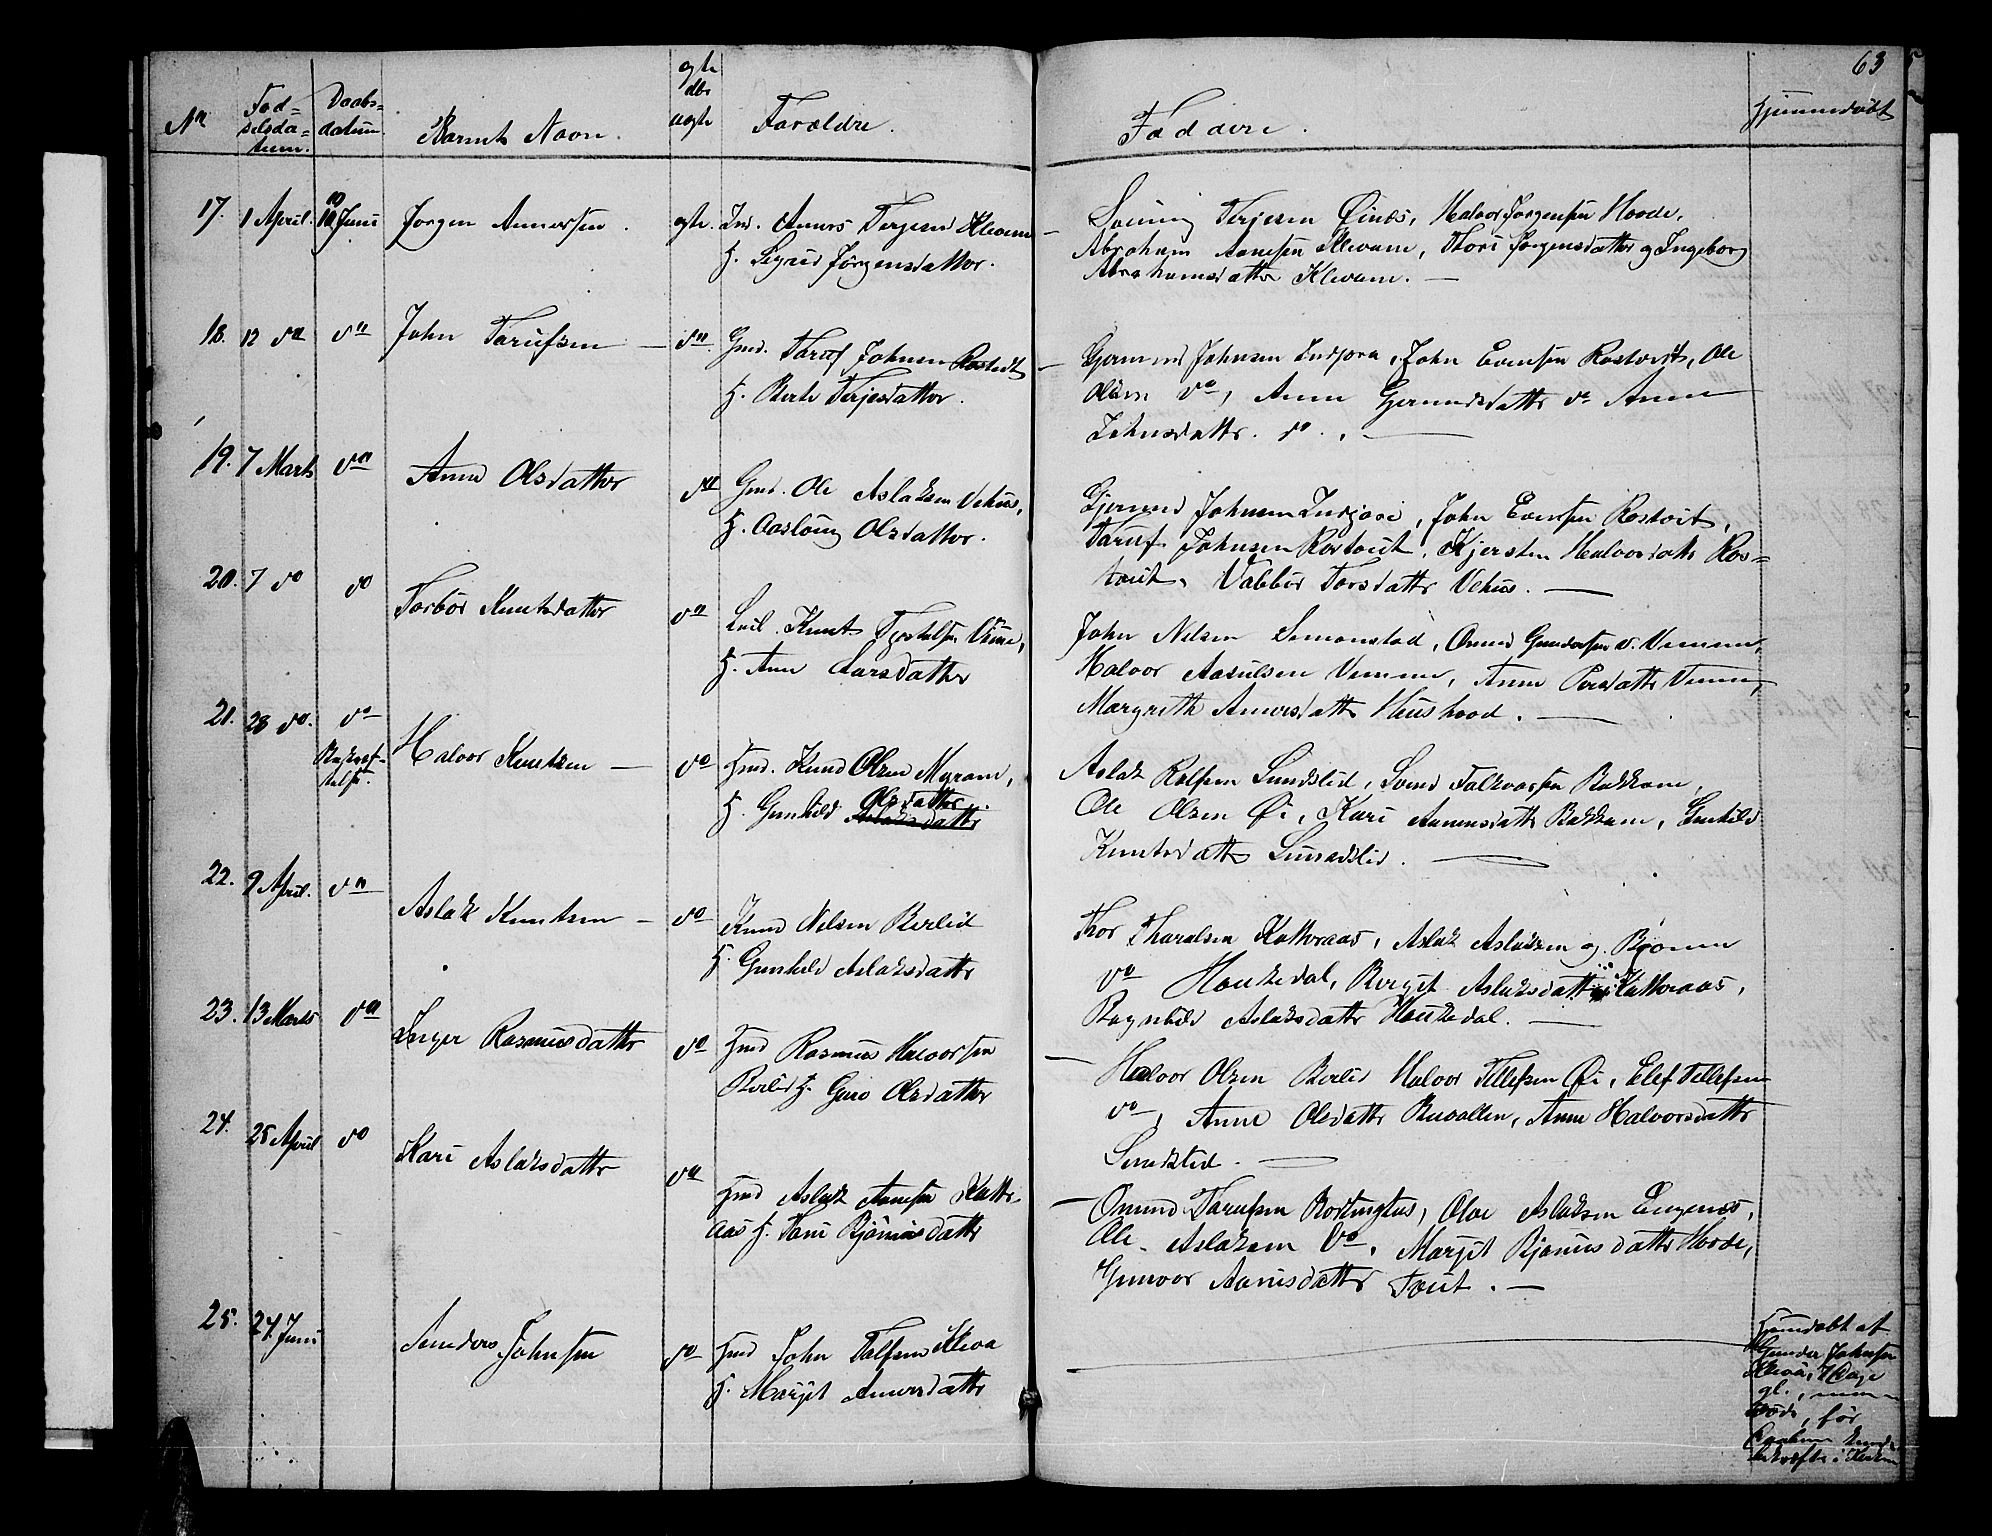 63
No
Fød=
selsda=
tum.
Daabs=
datum
Barnets Navn.
ægte
eller
uægte
Forældre.
Faddere.
Hjemmedøbt
17. 1 April. 10 Juni Jørgen Annersen. ægte. Ind. Aners Terjesen Klevane
H. Sigrid Jørgensdatter.
Terjesen Øinæs, Halvor Jørgensen Hovde,
Abraham Aanesen Klevane, Thori Jørgensdatter og Ingeborg
Abrahamsdatter Klevane. —
18. 12 do do John Tarufsen — do Gmd. Taruf Johnsen Rostvedt
H. Berte Terjesdatter.
Gjermund Johnsen, John Evensen Rostveit, Ole
Olsen do, Anne Germundsdatter do Anne
Johnsdatter do. —
19. 7 Marts do Anne Olsdatter do Gmd. Ole Aslaksen Vehus,
H. Aaslaug Olsdatter.
Gjermund Johnsen, John Evensen Rostveit,
Taruf Johnsen Rostveit, Kjersten Halvorsdatter Ros=
tveit, Vabbør Torsdatter Vehus. —
20. 7 do do Torbor Knutsdatter do Knut
H. Anne Larsdatter
John Nilsen Simonstad, Omund Gundersen Vimme,
Halvor Aasulsen Vimme, Anne Persdatter Vimme,
Margrethe Anersdatter. —
21. 28 do. do Halvor Knutsen — do Hmd. Knud Olsen Myrane,
H. Gunhild Olsdatter.
Aslaksdatter
Aslak Rolfsen Sundslid, Svend Bakkane,
Ole Olsen Øi, Kari Aanensdatter Bakkane, Gunhild
Knutsdatter Sundslid. —
22. 9 April. do Aslak Knutsen — do Knud Nilsen Berlid
H. Gunhild Aslaksdatter
Thor Tharalsen Katteraas, Aslak Aslaksen og Bjørn
do Haukedal, Berget Aslaksdatter Katteraas,
Ragnhild Aslaksdatter Haukedal. —
23. 13 Marts do Inger Rasmusdatter do Hmd Rasmus Halvorsen
Berlid H. Guro Olsdatter
Halvor Olsen Berlid Halvor Tellefsen Øi, Elef Tellefsen
do, Anne Olsdatter, Anne Halvorsdatter
Sundslid. —
24. 25 April do Kari Aslaksdatter do Hmd Aslak Aanesen Katter=
aas H. Tone Bjørnsdatter
Omund Tarufsen, Olav Aslaksen Engenes,
Ole Aslaksen do, Margit Bjørnsdatter Hovde,
Gunvor Aanesdatter Tveit. —
25. 24 Juni Anders Johnsen do Hmd John Kleva
H. Margit Anersdatter
Hjemdøbt af
Gunder Johnsen
Kleva, 7 Dage
gl.,
døde, før
Daaben
bekræftes i Kirken